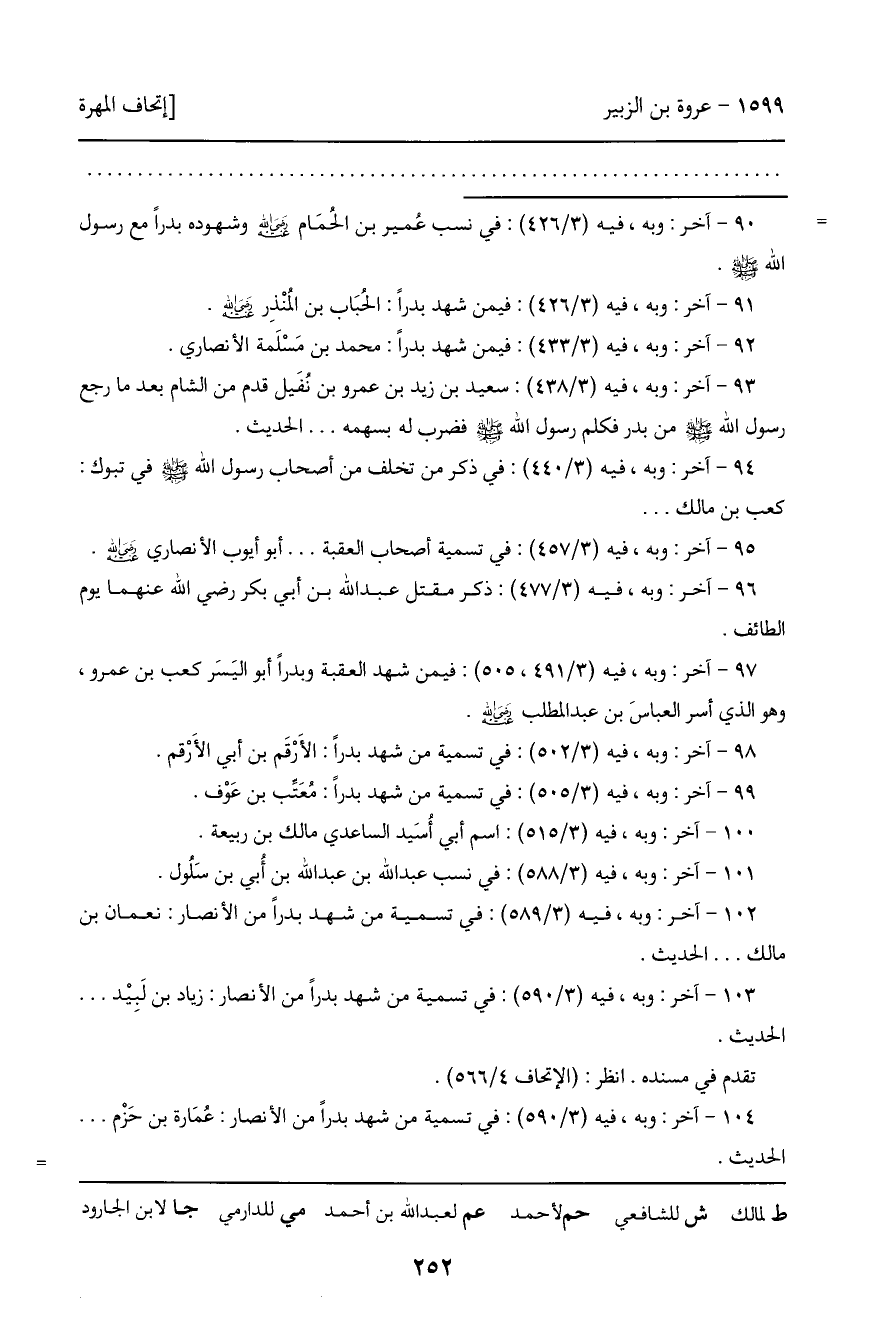 ١٥٩٩ - عروة بن الزبير
[إتحاف المهرة
. . . . . . . . . . . . . . . . . . . . . . . . . . . . . . . . . . . . . . . . . . . . . . . . . . . . . . . . . . . .
= ٩٠ - آخر : وبه ، فيه (٤٢٦/٣) : في نسب عُمير بن الحُمَام رضي الله عنه وشهوده بدراً مع رسول
الله ﷺ .
٩١ - آخر : وبه ، فيه (٤٢٦/٣) : فيمن شهد بدراً : الحُبَاب بن المُنْذِر رضي الله عنه .
٩٢ - آخر : وبه ، فيه (٤٣٣/٣) : فيمن شهد بدراً : محمد بن مَسْلَمة الأنصاري .
٩٣ - آخر : وبه ، فيه (٤٣٨/٣) : سعيد بن زيد بن عمرو بن نُفَيل قدم من الشام بعد ما رجع
رسول الله ﷺ من بدر فكلم رسول الله ﷺ فضرب له بسهمه . . . الحديث .
٩٤ - آخر : وبه ، فيه (٤٤٠/٣) : في ذكر من تخلف من أصحاب رسول الله ﷺ في تبوك :
كعب بن مالك . . .
٩٥ - آخر : وبه ، فيه (٤٥٧/٣) : في تسمية أصحاب العقبة . . . أبو أيوب الأنصاري رضي الله عنه .
٩٦ - آخر : وبه ، فيه (٤٧٧/٣) : ذكر مقتل عبدالله بن أبي بكر رضي الله عنهما يوم
الطائف .
٩٧ - آخر : وبه ، فيه (٤٩١/٣ ، ٥٠٥) : فيمن شهد العقبة وبدراً أبو اليَسَر كعب بن عمرو ،
وهو الذي أسر العباسَ بن عبدالمطلب رضي الله عنه .
٩٨ - آخر : وبه ، فيه (٥٠٢/٣) : في تسمية من شهد بدراً : الأَرْقَم بن أبي الأَرْقم .
٩٩ - آخر : وبه ، فيه (٥٠٥/٣) : في تسمية من شهد بدراً : مُعَتِّب بن عَوْف .
١٠٠ - آخر : وبه ، فيه (٥١٥/٣) : اسم أبي أُسَيد الساعدي مالك بن ربيعة .
١٠١ - آخر : وبه ، فيه (٥٨٨/٣) : في نسب عبدالله بن عبدالله بن أُبي بن سَلُول .
١٠٢ - آخر : وبه ، فيه (٥٨٩/٣) : في تسمية من شهد بدراً من الأنصار : نعمان بن
مالك . . . الحديث .
١٠٣ - آخر : وبه ، فيه (٥٩٠/٣) : في تسمية من شهد بدراً من الأنصار : زياد بن لَبِيْد . . .
الحديث .
تقدم في مسنده . انظر : (الإتحاف ٥٦٦/٤) .
١٠٤ - آخر : وبه ، فيه (٥٩٠/٣) : في تسمية من شهد بدراً من الأنصار : عُمَارة بن حَزْم . . .
الحديث . =
ط لمالك ش للشافعي حم لأحمد عم لعبدالله بن أحمد مي للدارمي جا لابن الجارود
٢٥٢